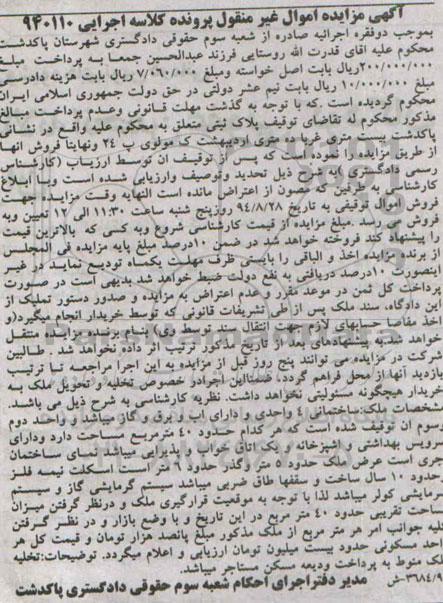 آگهی مزایده اموال غیر منقول پرونده کلاسه اجرایی ۹۴۰۱۱۰
بموجب دوفقره اجرائیه صادره از شعبه سوم حقوقی دادگستری شهرستان پاکدشت
محکوم علیه آقای قدرت الله روستایی فرزند عبدالحسین جمعا به پرداخت مبلغ
۲۰۰/۰۰۰/۰۰۰ریال بابت اصل خواسته ومبلغ ۷/۰۶۰/۰۰۰ ریال بابت هزینه دادرسی
۱۰/۰۰۰/۰۰۰ ریال بابت نیم عشر دولتی در حق دولت جمهوری اسلامی ایران
محکوم گردیده است .که با توجه به گذشت مهلت قانونی وعدم پرداخت مبالغ
مذکور محکوم له تقاضای توقیف پلاک ثبتی متعلق به محکوم علیه واقع در نشانی
پاکدشت بیست متری غربا ده متری اردیبهشت ک مولوی پ ۲۴ ونهایتا فروش انها
از طریق مزایده را نموده است که پس از توقیف ان توسط ارزیاب (کارشناس
رسمی دادگستری )به شرح ذیل تحدید وتوصیف وارزیابی شده است وبا ابلاغ
کارشناسی به طرفین مصون از اعتراض مانده است النهایه وقت مزایده جهت
فروش اموال توقیفی به تاریخ ۹۴/۸/۲۸ روزپنج شنبه ساعت ۱۱:۳۰ الی ۱۲ تعیین وبه
فروش می رسد .مبلغ مزایده از قیمت کارشناسی شروع وبه کسی که بالاترین قیمت
را پیشنهاد کند فروخته خواهد شد در ضمن ۱۰درصد مبلغ پایه مزایده فی المجلس
از برنده مزایده اخذ و الباقی را بایستی ظرف مهلت یکماه تودیع نماید در غیر
اینصورت ۱۰درصد دریافتی به نفع دولت ضبط خواهد شد.بدیهی است در صورت
پرداخت کل ثمن در موعد مقرر وعدم اعتراض به مزایده و صدور دستور تملیک از
این دادگاه، سند ملک پس از طی تشریفات قانونی که توسط خریدار انجام میگیرد(و
اخذ مفاصا حسابهای لازم جهت انتقال سند توسط وی) بنام برنده مزایده منتقل
خواهد شد.به پیشنهادهای بعد از تاریخ مذکور ترتیب اثر داده نخواهد شد . طالبین
شرکت در مزایده می توانند پنج روز قبل از مزایده به این اجرا مراجعه تا ترتیب
بازدید آنها از محل فراهم گردد. ضمنااین اجرادر خصوص تخلیه و تحویل ملک به
خریدار هیچگونه مسئولیتی نخواهد داشت. نظریه کارشناسی به شرح ذیل می باشد.
مشخصات ملک:ساختمانی ۴ واحدی و دارای اب و برق و گاز میباشد و واحد دوم
وسوم ان توقیف شده است که هر کدام حدود ۴۰ مترمربع مساحت دارد ودارای
سرویس بهداشتی و اشپزخانه و یک اتاق خواب و پذیرایی میباشد نمای ساختمان
جری است عرض ملک حدود ۵ متر وگذر حدود ۹ متر است .اسکلت نیمه فلز
حدود ۱۰ سال ساخت و سقفها طاق ضربی میباشد سیستم گرمایشی گاز و سیستم
سرمایشی کولر میباشد لذا با توجه به موقعیت قرارگیری ملک و درنظر گرفتن میزان
ساحت تقریبی حدود ۴۰ متر مربع در این تاریخ و با وضع بازار و در نظر گرفتن
لیه جوانب امر هر متر مربع از ملک مذکور مبلغ پانصد هزار تومان و قیمت کل هر
احد مسکونی حدود بیست میلیون تومان ارزیابی و اعلام میگردد. توضیحات:تخلیه
لک منوط به پرداخت ودیعه مسکن مستاجر میباشد.
۳۶۸۴/۹-ش مدیر دفتراجرای احکام شعبه سوم حقوقی دادگستری پاکدشت